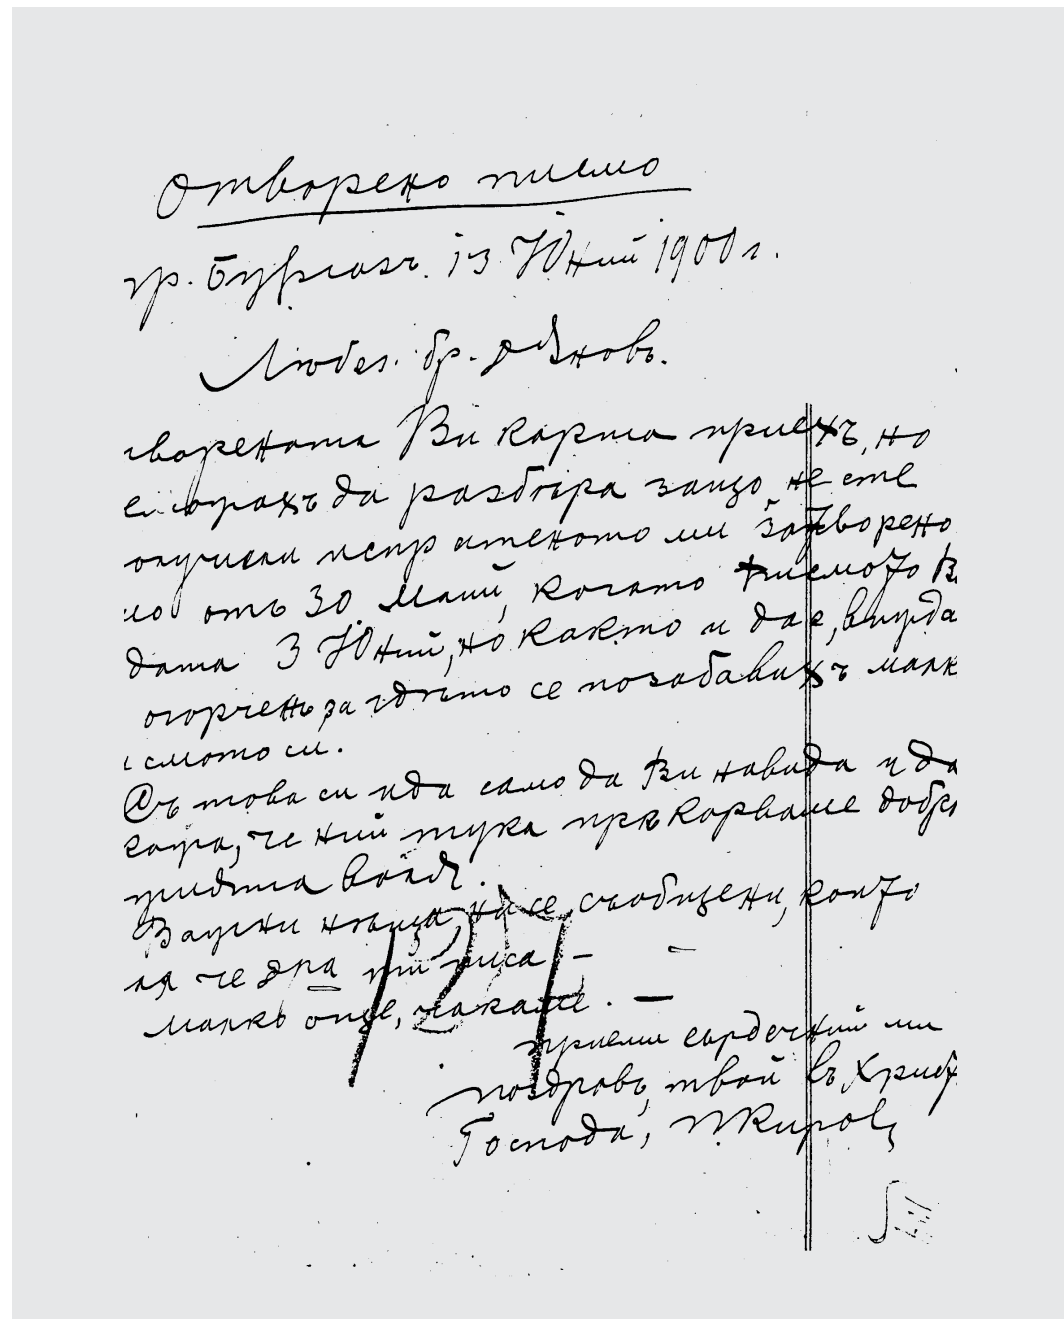 Отворено писмо
гр. Бургазъ. 13 Юний 1900 г.
Любез. бр. Дѣновъ.
творената Ви карта приехъ, но
да разбѣра защо не сте
получили испратеното ми затворено
мо отъ 30 Маий, когато писмото В
дата 3 Юний, но както и да е, въ
огорченъ за гдѣто се позабавихъ малк
смото си.
Съ това си ида само да Ви навида и да
кажа, че ний тука прѣкарваме добрѣ
Важни нѣща не се съобщени, които
ля че два ти писа –
малко още, чакаме. –
приеми сърдечний ми
поздравъ, твой въ Христ
Господа, П Кировъ
127